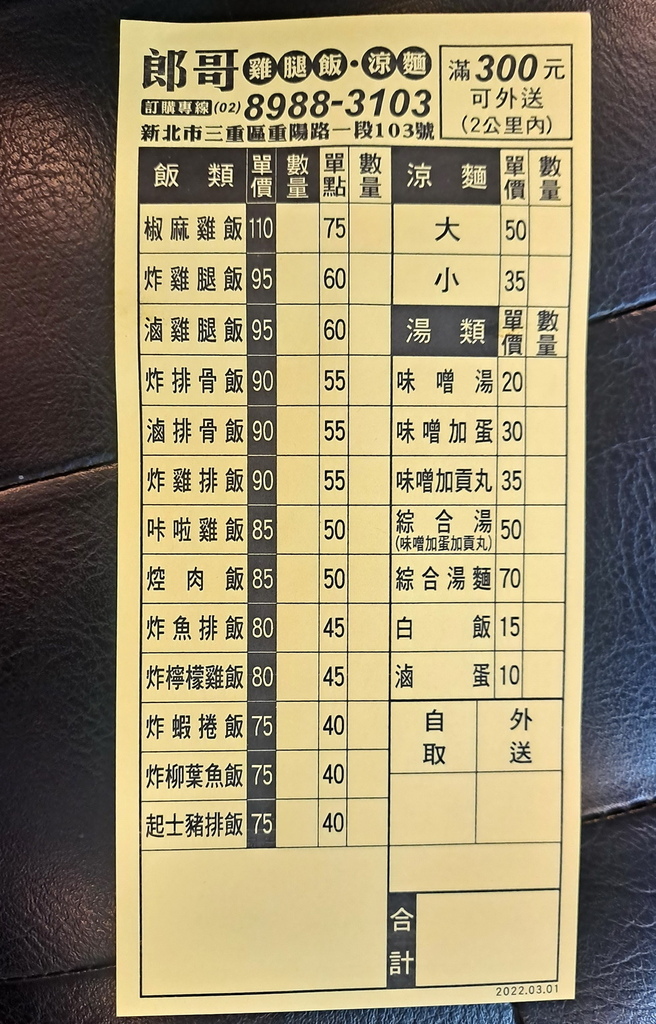 郎哥 雞腿飯·涼麵
訂購專線(02)8988-3103
新北市三重區重陽路一段103號
滿300元
可外送
(2公里內)
飯類 單價 數量 單點 數量
椒麻雞飯 110 75
炸雞腿飯 95 60
滷雞腿飯 95 60
炸排骨飯 90 55
滷排骨飯 90 55
炸雞排飯 90 55
咔啦雞飯 85 50
焢肉飯 85 50
炸魚排飯 80 45
炸檸檬雞飯 80 45
炸蝦捲飯 75 40
炸柳葉魚飯 75 40
起士豬排飯 75 40
涼麵 單價 數量
大 50
小 35
湯類 單價 數量
味噌湯 20
味噌加蛋 30
味噌加貢丸 35
綜合湯 50
(味噌加蛋加貢丸)
綜合湯麵 70
白飯 15
滷蛋 10
自取 外送
合計
2022.03.01